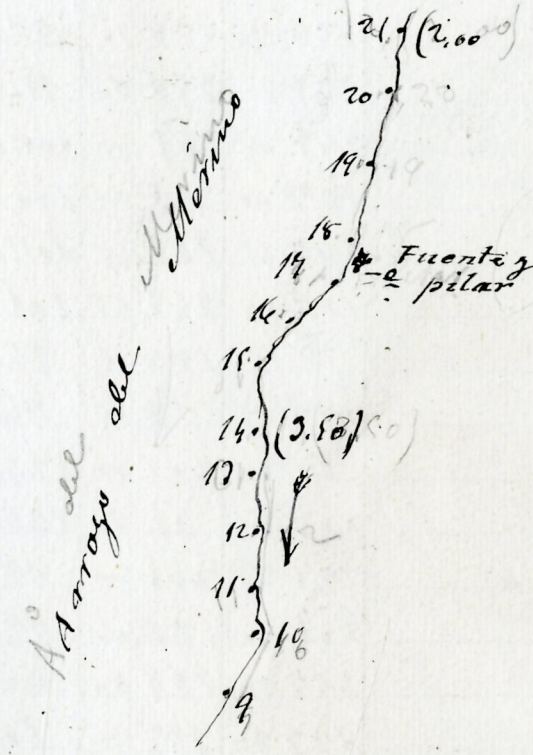 21 (2,00)
20
19
18
17
Fuente y
pilar
16
15
14 (3.50)
13
12
11
10
9
Arroyo del Merino